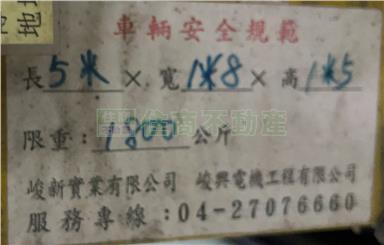 地
車輛安全規範
長5米×寬1米8×高1米5
住商不動產
限重：1800公斤
峻新實業有限公司 峻興電機工程有限公司
服務專線：04-27076660